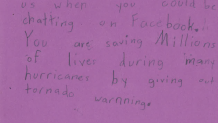 us when you could be
chatting on Facebook.
You are saving Millions
of lives during many
hurricanes by giving out
tornado warnning.